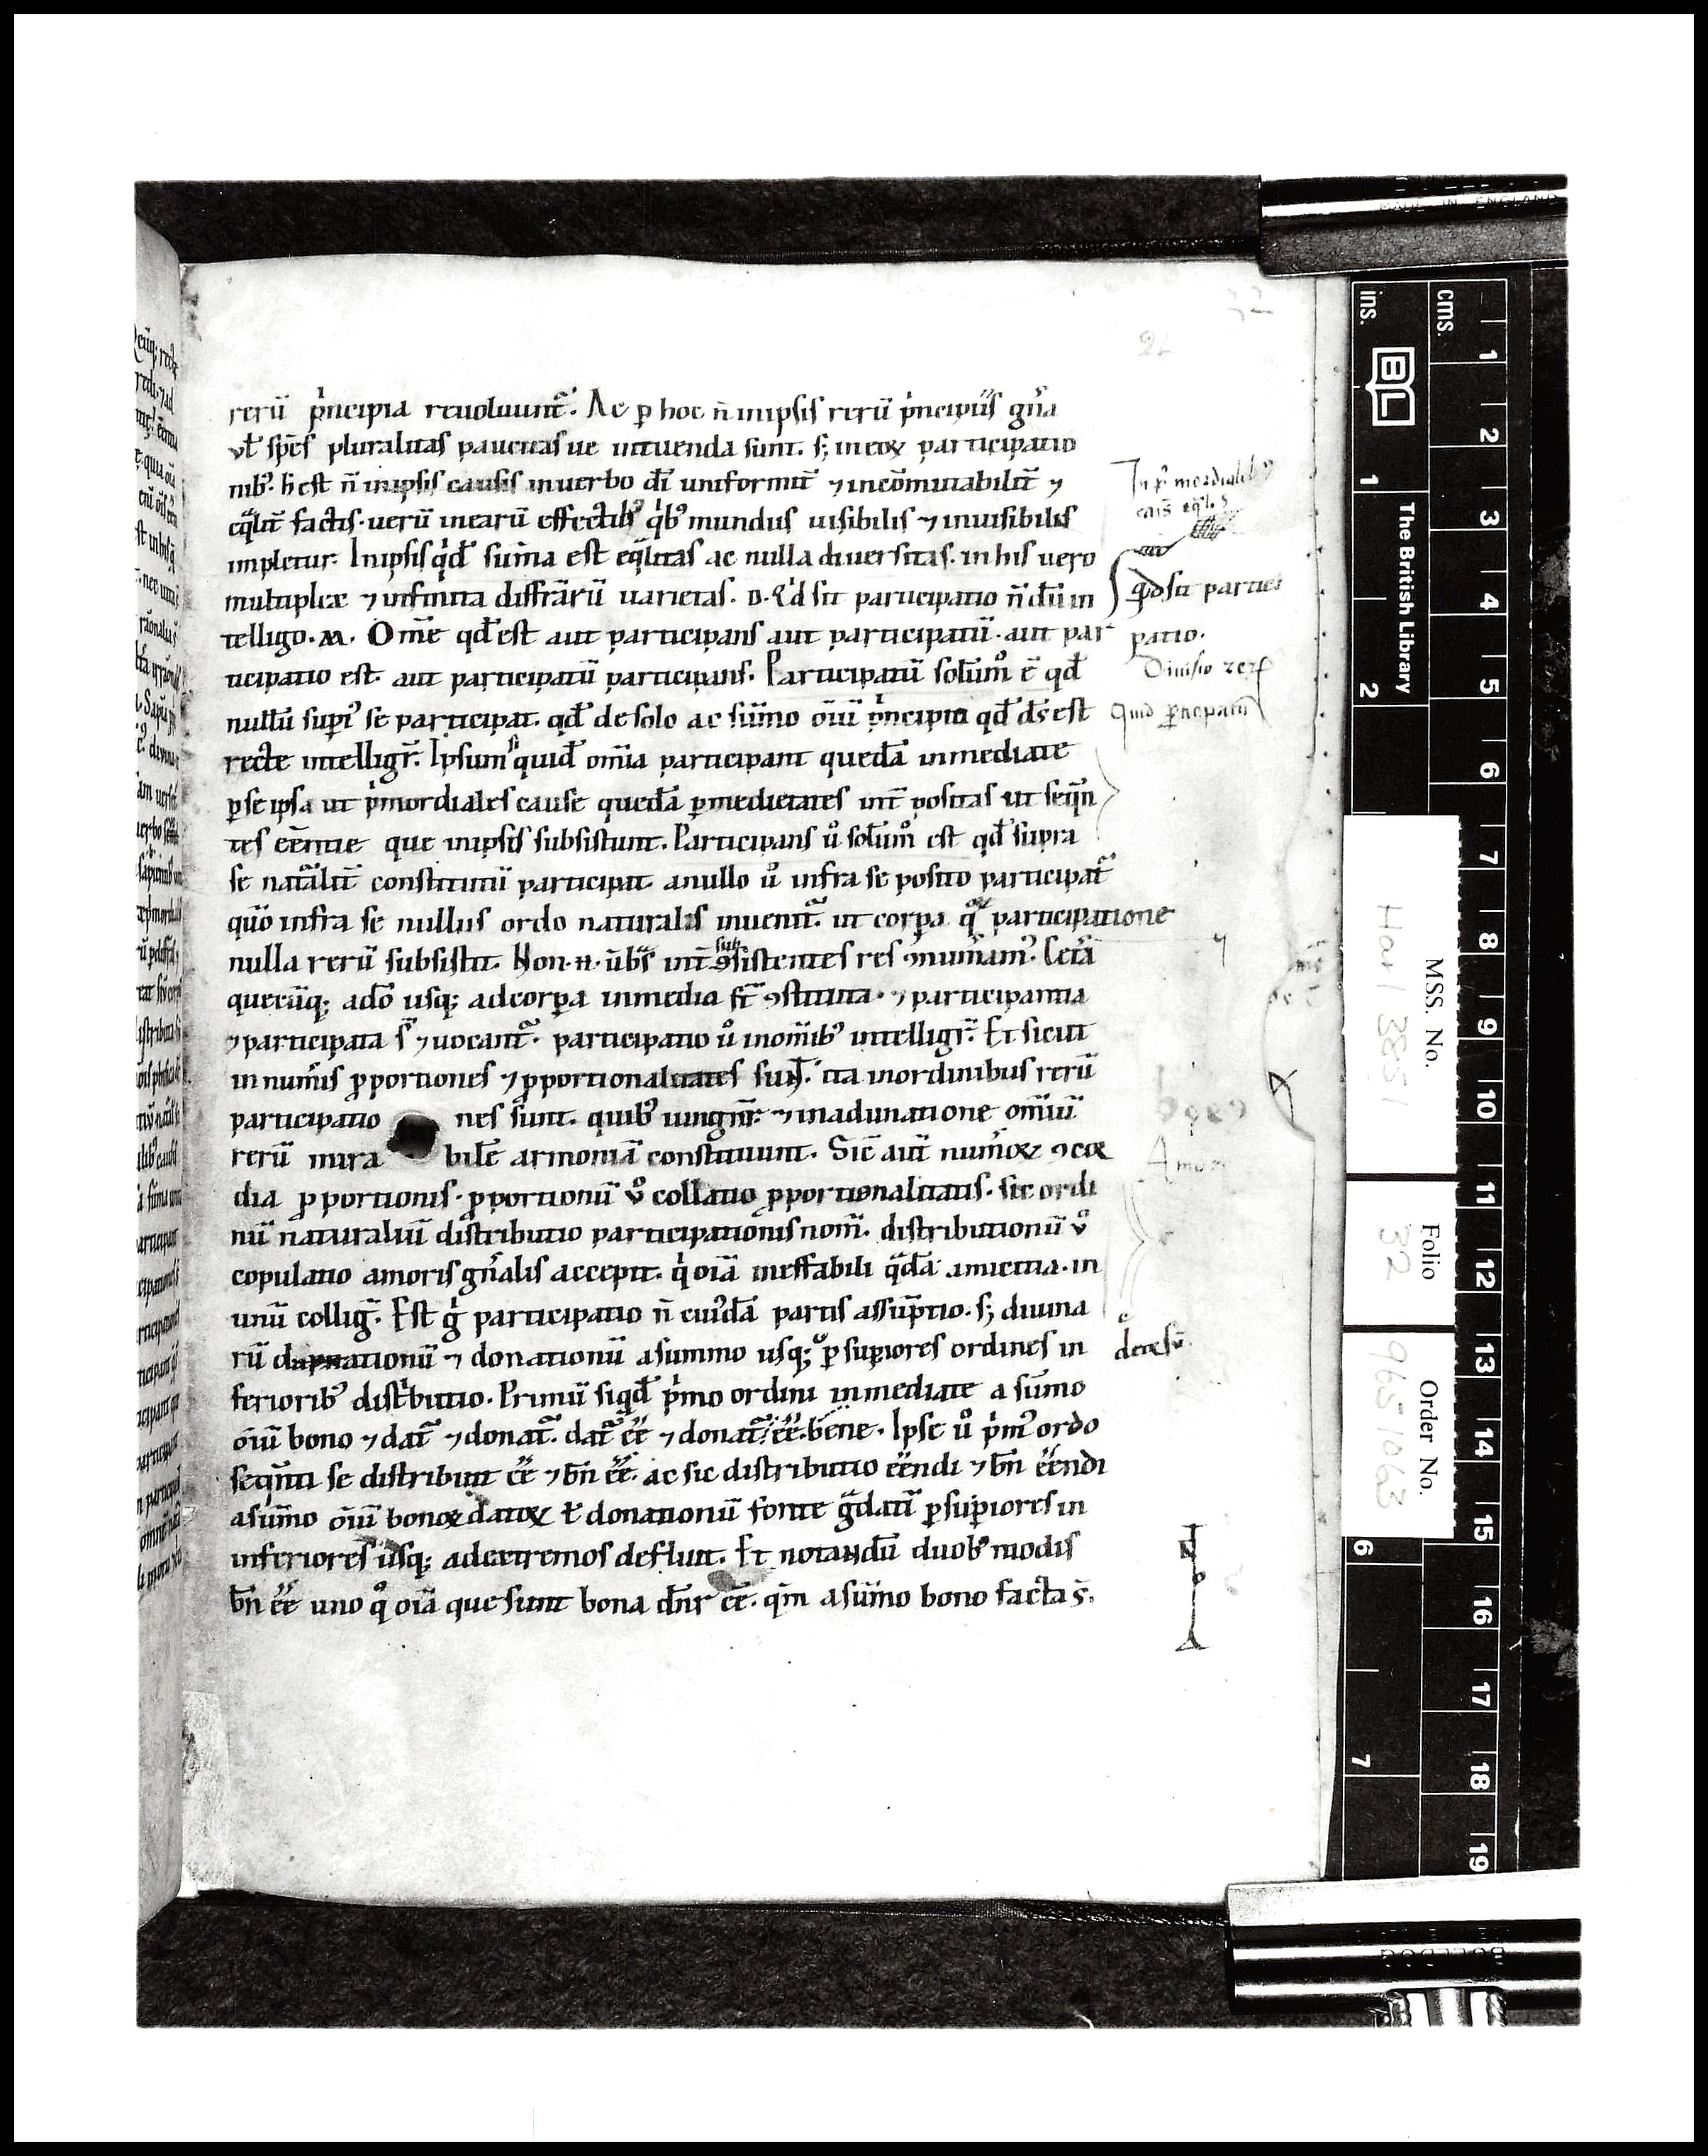 rerū p̍ncipia reuoluunt᷑. Ac ꝑ hoc n̄ in ipsis rerū p̍ncipiis gn̄a
vł spēs pluralitas paucitas ue intuenda sunt. s; in eoꝝ participatio
nibꝰ. h̄ est n̄ in ipsis causis in uerbo dī uniformit᷑ ⁊ incōmutabilit᷑ ⁊
eq̄lit᷑ factis. uerū in earū effectibꝰ q̍bꝰ mundus uisibilis ⁊ inuisibilis
impletur. In ipsis q̍dē sum̄a est eq̄litas ac nulla diuersitas. in his uero
multiplex ⁊ infinita diffrārū uarietas. D. Q̍d sit participatio n̄dū in
telligo. M. Om̄e qđ est aut participans aut participatū. aut par
ticipatio est. aut participatū participans. Participatū solūm̊ ē qđ
nullū supiꝰ se participat. qđ de solo ac sūmo oīu p̍ncipio qđ ds̄ est
recte intelligr̄. Ipsum siquidē om̄ia participant quedā inmediate
ꝑ se ipsa ut p̍mordiales cause quedā ꝑ medietates int᷑ positas ut seq̄n
tes eēntie que in ipsis subsistunt. Participans ů solūm̊ est qđ supra
se nat᷑alit᷑ constitutū participat. a nullo ů infra se posito participat᷑
quō infra se nullus ordo naturalis inuenit᷑. ut corpa q̊ꝝ participatione
nulla rerū subsistit. Non .n. ūbs̄ int᷑ subsistentes res ꝯnum̄amꝰ. Cet̄a
quecūq; ad̄o usq; ad corpa in media st̄ ꝯstituta. ⁊ participantia
⁊ participata s̄ ⁊ uocant᷑. participatio ů in om̄ibꝰ intelligr̄. Et sicut
in num̄is ꝓportiones ⁊ ꝓportionalitates sunt. ita in ordinibus rerū
participatio nes sunt. quibꝰ iungnr̄. ⁊ in adunatione om̄iū
rerū mira bilē armoniā constituunt. Sic̄ aut̄ num̄oꝝ ꝯcor
dia ꝓportionis. ꝓportionū v̊ collatio ꝓportionalitatis. sic ordi
nū naturaliū distributio participationis nom̄. distributionū v̊
copulatio amoris gn̄alis accepit. q̍ oīā ineffabili q̄dā amicitia. in
unū collig᷑. Est g̍ participatio n̄ cuiꝰdā partis assūptio. s; diuina
rū dapnationū ⁊ donationū a summo usq; ꝑ supiores ordines in
ferioribꝰ dist̍butio. Primū siqđ p̍mo ordini inmediate a sūmo
oīu bono ⁊ dat᷑ ⁊ donat᷑. dat᷑ ēē ⁊ donat᷑ ēē bene. Ipse ů p̍mꝰ ordo
seq̄nti se distribuit ēē ⁊ bn̄ ēē. ac sic distributio ēēndi ⁊ bn̄ ēēndi
a sūmo oīu bonoꝝ datoꝝ ł donationū fonte g̍datī ꝑ supiores in
inferiores usq; ad extremos defluit. Et notandū duobꝰ modis
bn̄ ēē uno q̊ oīā que sunt bona dn̄r ēē. qm̄ a sūmo bono facta s̄.
q̍d sit partici
patio.
Diuisio rerꝝ
MADE IN ENGLAND
ins.
cms.
BL
The British Library
1
2
3
4
5
6
7
8
9
10
11
12
13
14
15
16
17
18
19
1
2
6
7
MSS. No.
Harl 3851
Folio
32
Order No.
965 1063